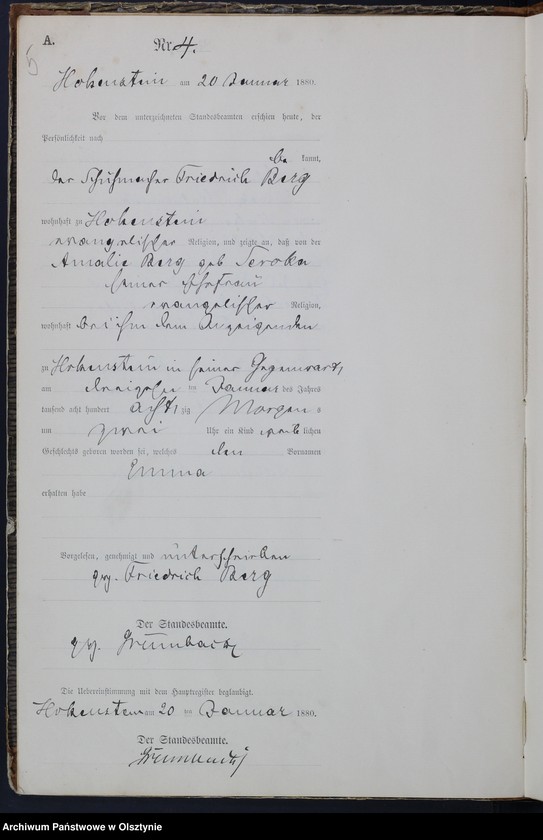 A.
5
Nr. 4.
Hohenstein am 20 Januar 1880.
Vor dem unterzeichneten Standesbeamten erschien heute, der
Persönlichkeit nach
be kannt,
der Schuhmacher Friedrich Berg
wohnhaft zu Hohenstein
evangelischer Religion, und zeigte an, daß von der
Amalie Berg geb
seiner Ehefrau
evangelischer Religion,
wohnhaft bei ihm dem Anzeigenden
zu Hohenstein in seiner Gegenwart,
am dreizehn ten Januar des Jahres
tausend acht hundert acht zig Morgens
um zwei Uhr ein Kind weib lichen
Geschlechts geboren worden sei, welches den Vornamen
Emma
erhalten habe
Vorgelesen, genehmigt und unterschrieben
gez. Friedrich Berg
Der Standesbeamte.
gez.
Die Uebereinstimmung mit dem Hauptregister beglaubigt.
Hohenstein am 20 ten Januar 1880.
Der Standesbeamte.
Archiwum Państwowe w Olsztynie